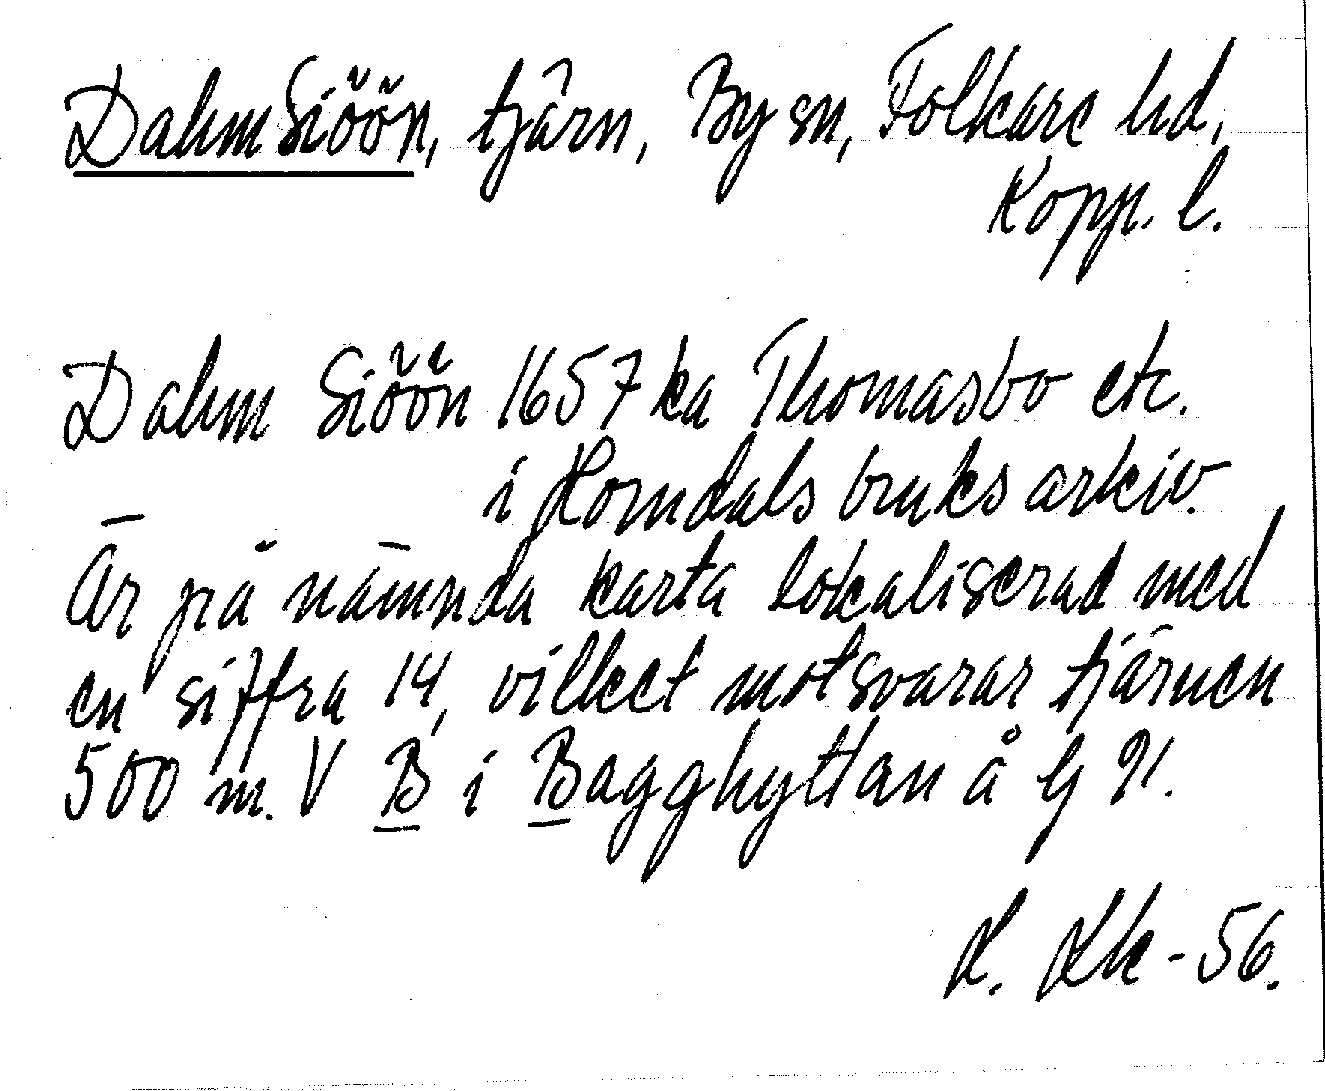 Dahm Siöön, tjärn, By sn, Folkare hd,
Kopp. l.
Dahm Siöön 1657 ka Thomasbo etc.
i Horndals bruks arkiv.
Är på nämnda karta lokaliserad med
en siffra 14, vilket motsvarar tjärnen
500 m. V B i Bagghyttan å G 91.